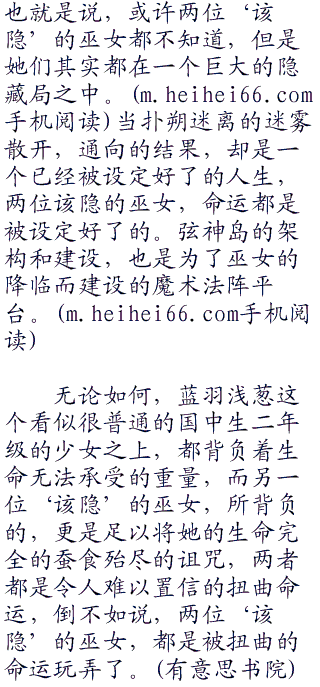 也就是说，或许两位‘该
隐’的巫女都不知道，但是
她们其实都在一个巨大的隐
藏局之中。(m.heihei66.com
手机阅读)当扑朔迷离的迷雾
散开，通向的结果，却是一
个已经被设定好了的人生，
两位该隐的巫女，命运都是
被设定好了的。弦神岛的架
构和建设，也是为了巫女的
降临而建设的魔术法阵平
台。(m.heihei66.com手机阅
读)
无论如何，蓝羽浅葱这
个看似很普通的国中生二年
级的少女之上，都背负着生
命无法承受的重量，而另一
位‘该隐’的巫女，所背负
的，更是足以将她的生命完
全的蚕食殆尽的诅咒，两者
都是令人难以置信的扭曲命
运，倒不如说，两位‘该
隐’的巫女，都是被扭曲的
命运玩弄了。(有意思书院)